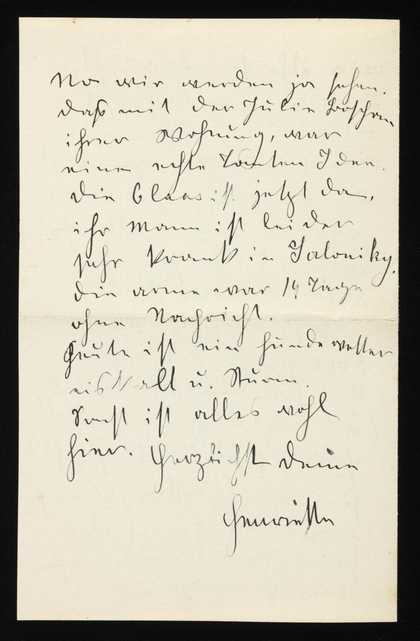 Na wir werden ja sehen.
Das mit der Julie
ihrer Wohnung, war
eine echte Tanten Idee.
Die Claas ist jetzt da,
ihr Mann ist leider
sehr krank in Saloniky,
die arme war 14 Tage
ohne Nachricht.
Heute ist ein Hundewetter
eiskalt u. Sturm.
Sonst ist alles wohl
hier. Herzlichst Deine
Henriette